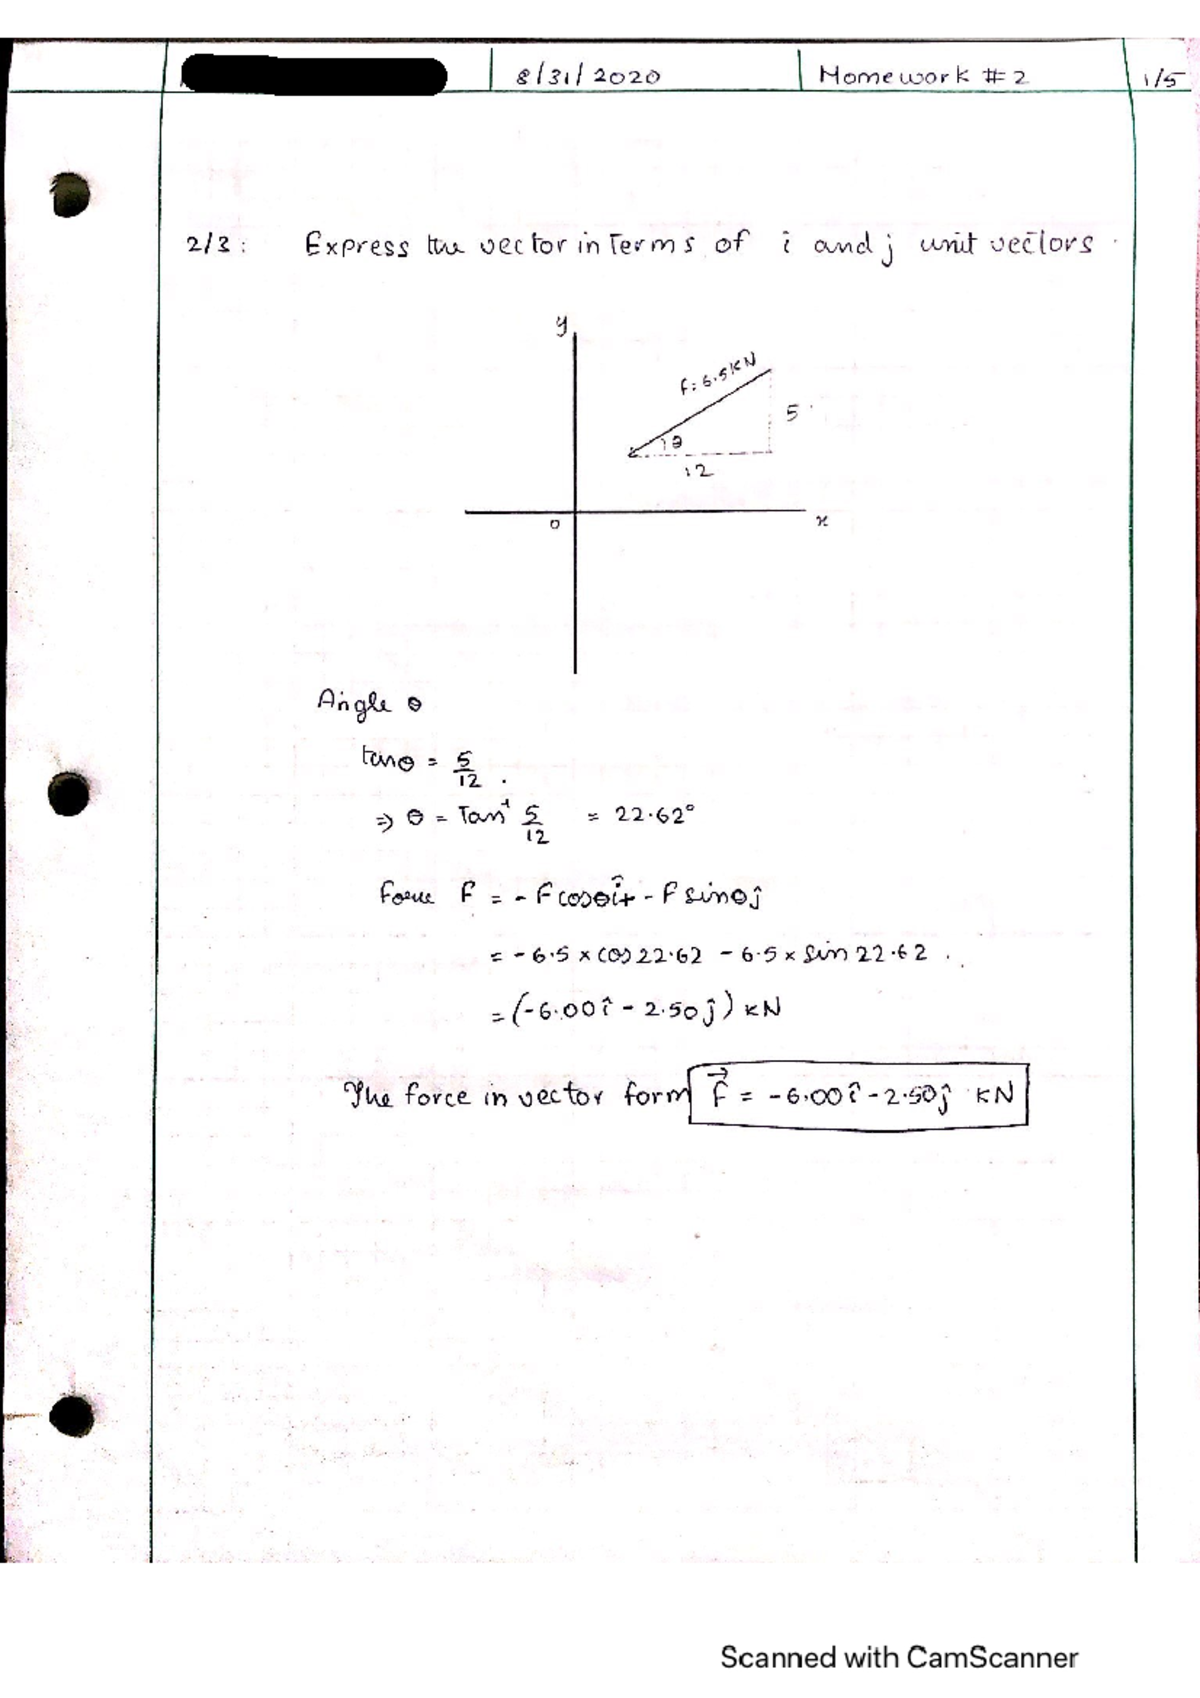 8/31/2020 Homework #2 1/5
2/3: Express the vector in Terms of i and j unit vectors.
y
F: 6.5KN
5
θ
12
0 x
Angle θ
tanθ = 5/12.
⇒ θ = Tan⁻¹ 5/12 = 22.62°
Force F = - Fcosθî + - F sinθĵ
= - 6.5 × cos 22.62 - 6.5 × sin 22.62.
= (-6.00î - 2.50ĵ) KN
The force in vector form F⃗ = -6.00î - 2.50ĵ KN
Scanned with CamScanner